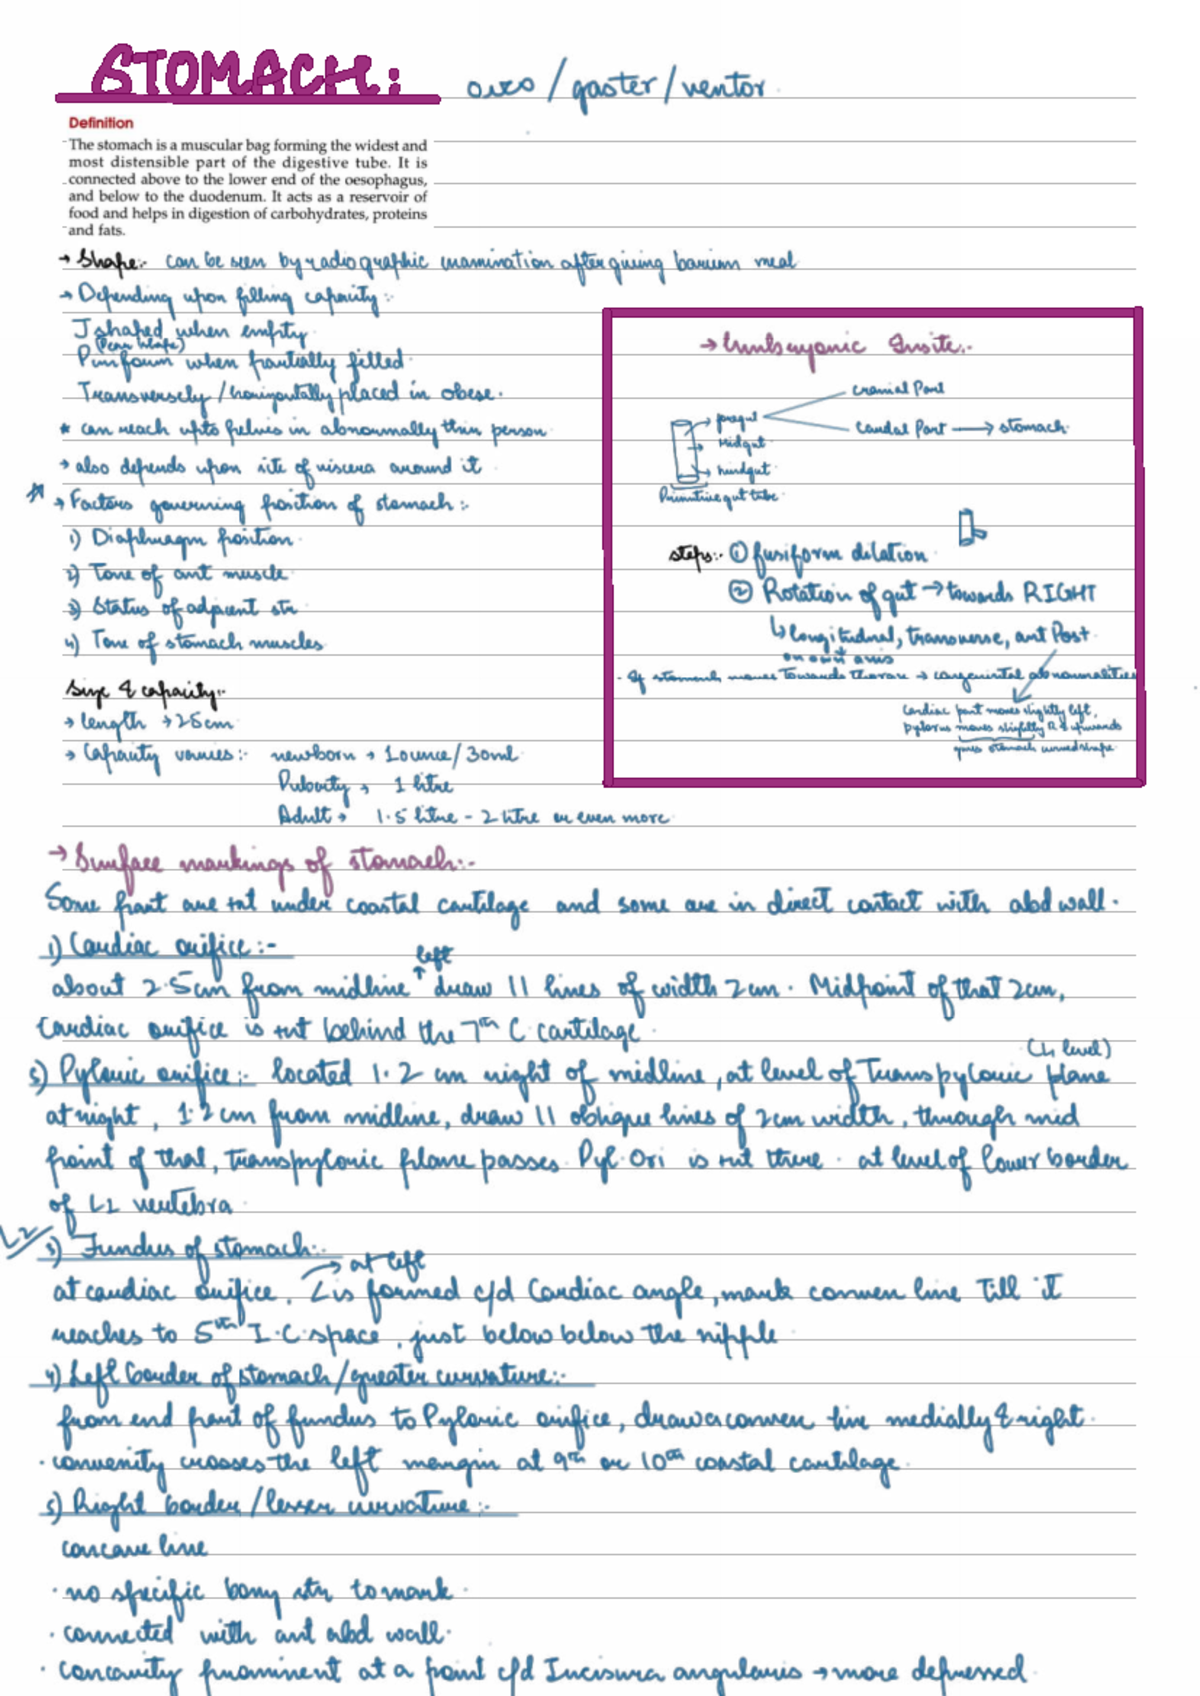 STOMACH: oreo / gaster / ventor
Definition
The stomach is a muscular bag forming the widest and
most distensible part of the digestive tube. It is
connected above to the lower end of the oesophagus,
and below to the duodenum. It acts as a reservoir of
food and helps in digestion of carbohydrates, proteins
and fats.
→ Shape:- can be seen by radiographic examination after giving barium meal
→ Depending upon filling capacity:-
J shaped when empty
(Pear shape)
Piriform when partially filled.
Transversely / horizontally placed in obese.
* can reach upto pelvis in abnormally thin person
→ also depends upon site of viscera around it
→ Factors governing position of stomach:-
1) Diaphragm position
2) Tone of ant muscle
3) Status of adjacent str
4) Tone of stomach muscles
Size & capacity:-
→ length → 25cm
→ Capacity varies:- newborn → 1 ounce / 30ml
Puberty → 1 litre
Adult → 1.5 litre - 2 litre or even more
→ Embryonic Insite:-
cranial Part
foregut
Caudal Part → stomach
Midgut
hindgut
Primitive gut tube
steps:- ① fusiform dilation
② Rotation of gut → towards RIGHT
↳ longitudinal, transverse, ant Post
on own axis
- If stomach moves Towards thorax → congenital abnormalities
Cardiac part moves slightly left,
pylorus moves slightly R & upwards
gives stomach curved shape
→ Surface markings of stomach:-
Some part are +nt under coastal cartilage and some are in direct contact with abd wall.
1) Cardiac orifice:-
left
about 2.5cm from midline ↑ draw 11 lines of width 2cm. Midpoint of that 2cm,
Cardiac orifice is +nt behind the 7th C cartilage
(L1 level)
2) Pyloric orifice:- located 1.2 cm right of midline, at level of Transpyloric plane
at right, 1.2cm from midline, draw 11 oblique lines of 2cm width, through mid
point of that, transpyloric plane passes. Pyl. Ori is +nt there. at level of lower border
of L1 vertebra
L2
3) Fundus of stomach:-
→ at left
at cardiac orifice. ∠ is formed c/d Cardiac angle, mark convex line Till it
reaches to 5th I.C. space, just below below the nipple
4) Left border of stomach / greater curvature:-
from end part of fundus to Pyloric orifice, draw a convex line medially & right.
· convexity crosses the left margin at 9th or 10th coastal cartilage.
5) Right border / lesser curvature:-
concave line
· no specific bony str to mark.
· connected with ant abd wall.
· concavity prominent at a point c/d Incisura angularis → more depressed